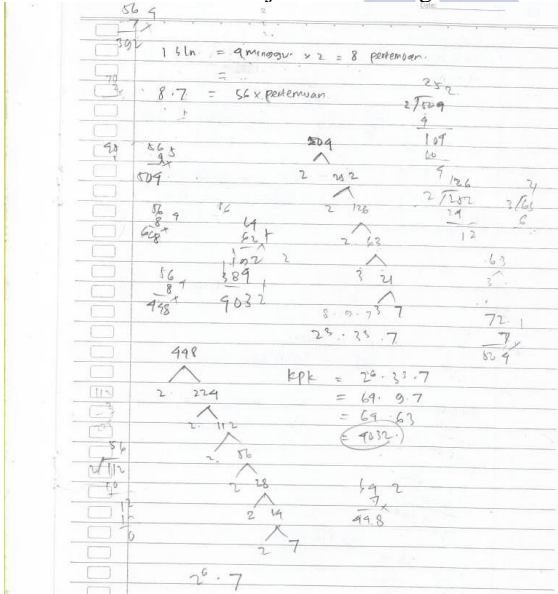 56 4
7
392
1 bln. = 4 minggu × 2 = 8 pertemuan.
=
8.7 = 56 x pertemuan
252
2/504
4
104
10
56 5
9 x
504
504
2 252
2 126
2 63
3 21
3 7
2³ . 3² . 7
126
2/252
12
3/63
6
63
56 4
8 x
448
56
64
63 x
192 2
384 +
4032
56 4
8 x
448
72 1
7 x
504
448
2 224
2 112
2 56
2 28
2 14
2 7
2⁶ . 7
KPK = 2⁶ . 3² . 7
= 64 . 9 . 7
= 64 . 63
= 4032.
56
2/112
10
12
12
0
64 2
7 x
448